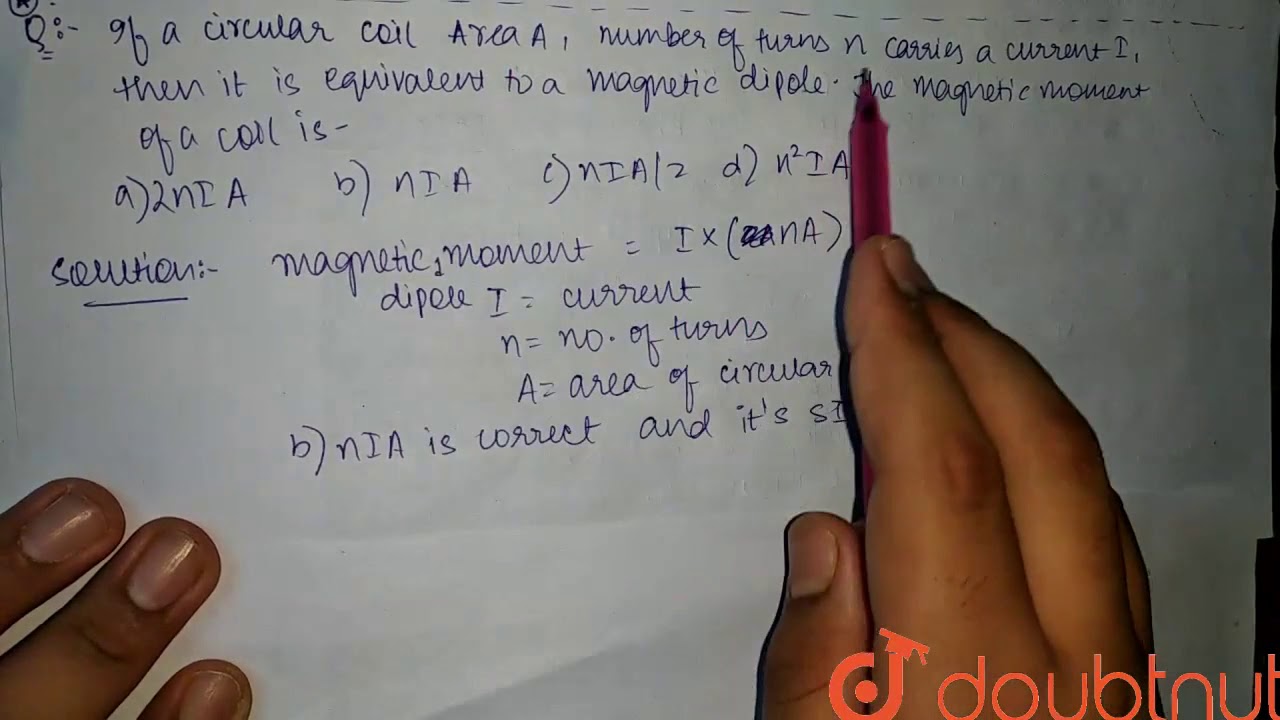 Q:- If a circular coil Area A, number of turns n carries a current I,
then it is equivalent to a magnetic dipole. The magnetic moment
of a coil is-
a) 2nIA b) nIA c) nIA/2 d) n²IA
Solution:- magnetic, moment = I × (nA)
dipole I = current
n = no. of turns
A = area of circular
b) nIA is correct and it's SI
doubtnut